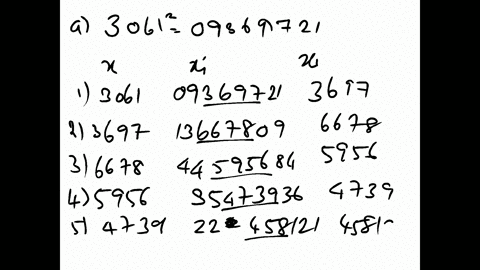 a) 3061² = 09369721
x x₁ x₁
1) 3061 09369721 3697
2) 3697 13667809 6678
3) 6678 44595684 5956
4) 5956 35473936 4739
5) 4739 22 458121 4581